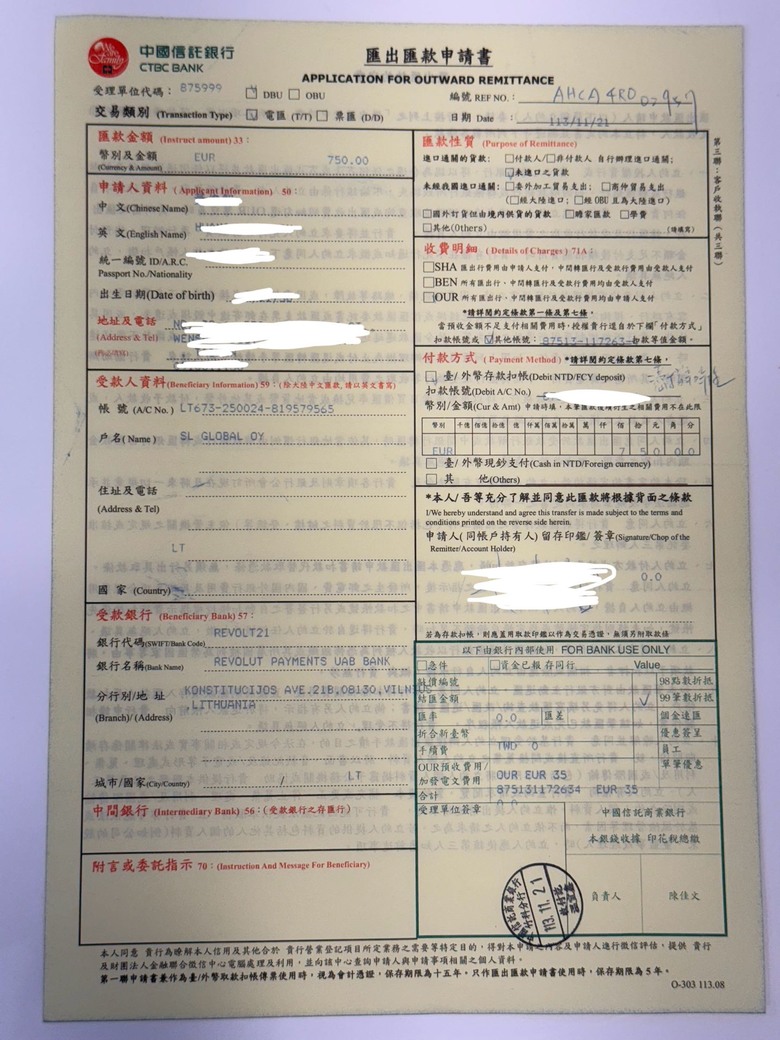 中國信託銀行
CTBC BANK
We are family
匯出匯款申請書
APPLICATION FOR OUTWARD REMITTANCE
受理單位代碼: 875999
DBU OBU
編號 REF NO.: AHCA4RD
交易類別 (Transaction Type) 電匯 (T/T) 票匯 (D/D)
日期 Date: 113/11/21
第三聯:客戶收執聯(共三聯)
匯款金額 (Instruct amount) 33:
幣別及金額 EUR 750.00
(Currency & Amount)
申請人資料 (Applicant Information) 50:
中 文(Chinese Name)
英 文(English Name)
統一編號 ID/A.R.C.
Passport No./Nationality
出生日期(Date of birth)
地址及電話
(Address & Tel) WEN
受款人資料(Beneficiary Information) 59:(除大陸中文匯款,請以英文書寫)
帳 號 (A/C No.) LT673-250024-819579565
戶 名( Name ) SL GLOBAL OY
住址及電話
(Address & Tel)
LT
國 家 (Country)
受款銀行 (Beneficiary Bank) 57:
銀行代碼(SWIFT/Bank Code) REVOLT21
銀行名稱(Bank Name) REVOLUT PAYMENTS UAB BANK
分行別/地 址 KONSTITUCIJOS AVE.21B,08130,VILNIUS
(Branch)/ (Address) LITHUANIA
城市/國家(City/Country) / LT
中間銀行 (Intermediary Bank) 56:(受款銀行之存匯行)
附言或委託指示 70:(Instruction And Message For Beneficiary)
匯款性質 (Purpose of Remittance)
進口通關的貨款: 付款人/非付款人 自行辦理進口通關;
未進口之貨款
未經我國進口通關: 委外加工貿易支出; 商仲貿易支出
(經大陸進口; 經OBU且為大陸進口)
國外訂貨但由境內供貨的貨款 贍家匯款 學費
其他(Others) (請填寫)
收費明細 (Details of Charges) 71A:
SHA 匯出行費用由申請人支付,中間轉匯行及受款行費用由受款人支付
BEN 所有匯出行,中間轉匯行及受款行費用均由受款人支付
OUR 所有匯出行,中間轉匯行及受款行費用均由申請人支付
*請詳閱約定條款第一條及第七條。
當預收金額不足支付相關費用時,授權貴行逕自於下欄「付款方式」
扣款帳號或 其他帳號: 87513-117263- 扣款等值金額。
付款方式 (Payment Method) *請詳閱約定條款第七條。
臺/外幣存款扣帳(Debit NTD/FCY deposit)
扣款帳號(Debit A/C No.)
幣別/金額(Cur & Amt) 申請時填,本筆匯款後續衍生之相關費用不在此限
幣別 十億 億 仟萬 佰萬 拾萬 萬 仟 佰 拾 元 角 分
EUR 7 5 0 0 0
臺/外幣現鈔支付(Cash in NTD/Foreign currency)
其 他(Others)
*本人/吾等充分了解並同意此匯款將根據背面之條款
I/We hereby understand and agree this transfer is made subject to the terms and
conditions printed on the reverse side herein.
申請人(同帳戶持有人)留存印鑑/簽章(Signature/Chop of the
Remitter/Account Holder)
0.0
若為存款扣帳,則應蓋用取款印鑑以作為交易憑證,無須另附取款條
以下由銀行內部使用 FOR BANK USE ONLY
急件 資金已報存同行 Value
結匯金額
98點數折抵
99筆數折抵
匯率 0.0 匯差
個金遠匯
折合新臺幣
優惠簽呈
手續費 TWD 0
員工
OUR預收費用/
單筆優惠
加發電文費用 OUR EUR 35
合計 875131172634 EUR 35
受理單位簽章 0.0
中國信託商業銀行
本銀錢收據 印花稅總繳
負責人 陳佳文
113.11.21
本人同意 貴行為瞭解本人信用及其他合於 貴行營業登記項目所定業務之需要等特定目的,得對本申請之內容及申請人進行徵信評估,提供 貴行
及財團法人金融聯合徵信中心電腦處理及利用,並向該中心查詢申請人與申請事項相關之個人資料。
第一聯申請書兼作為臺/外幣取款扣帳傳票使用時,視為會計憑證,保存期限為十五年。只作匯出匯款申請書使用時,保存期限為5年。
O-303 113.08